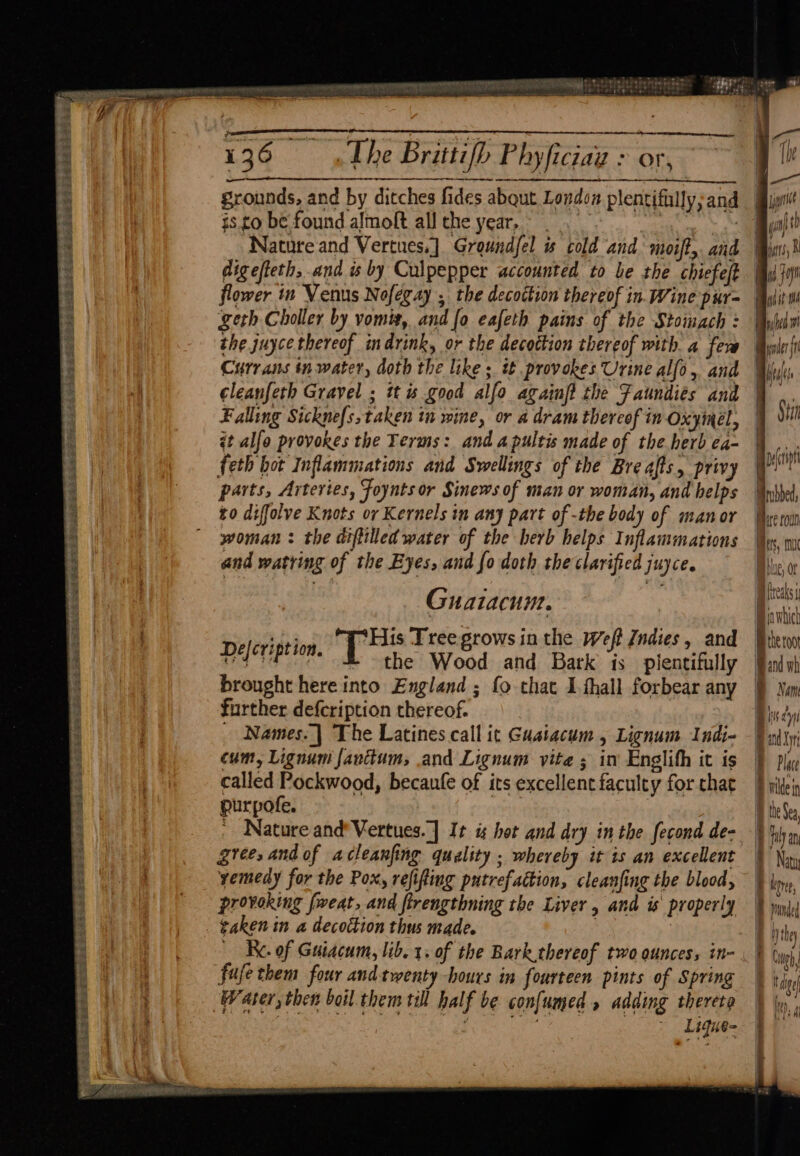 136 The Brittiſh Phyſician : or,
grounds, and by ditches ſides about London plentifully, and
is to be found almoſt all the year.
Nature and Vertues.] Groundſel is cold and moiſt, and
digeſteth, and is by Culpepper accounted to be the chiefeſt
flower in Venus Noſegay ; the decoction thereof in Wine pur-
geth Choller by vomit, and ſo eaſeth pains of the Stomach :
the juyce thereof in drink, or the decoction thereof with a few
Currans in water, doth the like ; it provokes Urine alſo, and
cleanſeth Gravel ; it is good alſo againſt the Jaundies and
Falling Sickneſs, taken in wine, or a dram thereof in Oxymel,
it alſo provokes the Terms : and a pultis made of the herb ea-
ſeth hot Inflammations and Swellings of the Breaſts, privy
parts, Arteries, Joynts or Sinews of man or woman, and helps
to diſſolve Knots or Kernels in any part of the body of man or
woman : the diſtilled water of the herb helps Inflammations
and watring of the Eyes, and ſo doth the clarified juyce.
Guaiacum.
Deſcription. THis Tree grows in the Weſt Indies, and
the Wood and Bark is plentifully
brought here into England ; ſo that I ſhall forbear any
further deſcription thereof.
Names.] The Latines call it Guaiacum, Lignum Indi-
cum, Lignum ſanctum, and Lignum vitæ ; in Engliſh it is
called Pockwood, becauſe of its excellent faculty for that
purpoſe.
Nature and Vertues.] It is hot and dry in the ſecond de-
gree, and of a cleanſing quality ; whereby it is an excellent
remedy for the Pox, reſiſting putrefaction, cleanſing the blood,
provoking ſweat, and ſtrengthning the Liver, and is properly
taken in a decoction thus made.
℞. of Guiacum, lib. 1. of the Bark thereof two ounces, in-
fuſe them four and twenty hours in fourteen pints of Spring
Water, then boil them till half be conſumed, adding thereto
Lique-